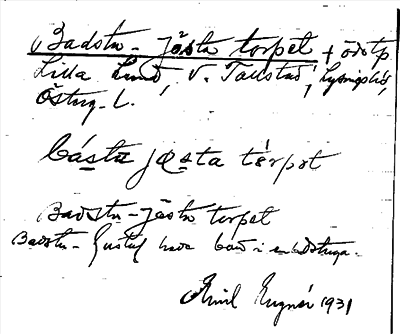 Badstu-Jösta torpet + ödetp.
Lilla Lund, V. Tollstad, Lysings hd,
Österg. L.
bástu jœsta térpǝt
Badstu-Jösta torpet
Badstu-Gustaf hade bad i en badstuga.
Emil Eugnér 1931